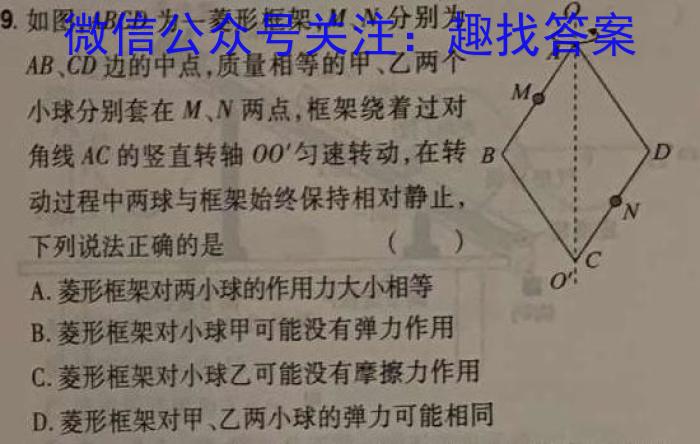 9. 如图,ABCD为一菱形框架,M、N分别为
微信公众号关注：趣找答案
AB、CD边的中点,质量相等的甲、乙两个
小球分别套在M、N两点,框架绕着过对
角线AC的竖直转轴OO′匀速转动,在转
动过程中两球与框架始终保持相对静止,
下列说法正确的是 ( )
A. 菱形框架对两小球的作用力大小相等
B. 菱形框架对小球甲可能没有弹力作用
C. 菱形框架对小球乙可能没有摩擦力作用
D. 菱形框架对甲、乙两小球的弹力可能相同
O
A
M
B
D
N
C
O′